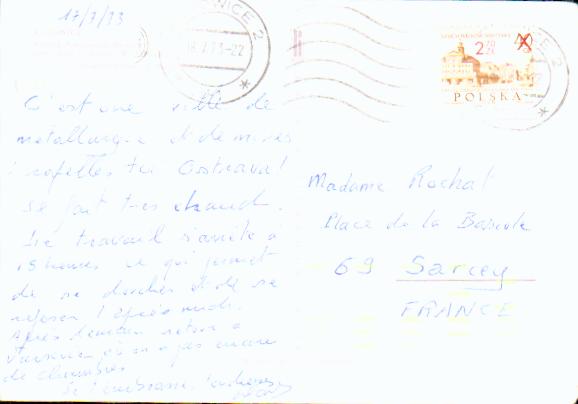 17/7/73
2
18.7.73-22
2.70
POLSKA
C'est une ville de
métallurgie et de mines
rapelles toi Ostrava!
Il fait très chaud.
Le travail s'arrête à
15 heures ce qui permet
de se doucher et de se
reposer l'après midi.
Après demain retour à
Varsovie où on a pas encore
de chambres
Je t'embrasse
Madame Rochat
Place de la Bascule
69 Sarcey
FRANCE